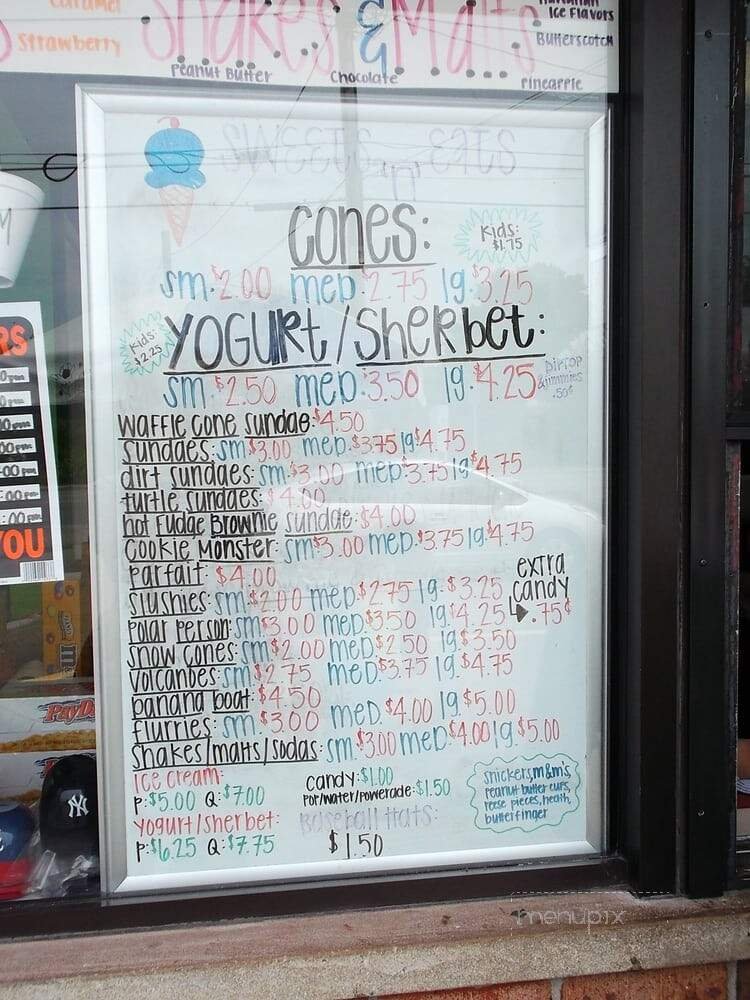 Caramel
Strawberry
Shakes & Malts
Peanut Butter
Chocolate
Hawaiian
Ice Flavors
Butterscotch
Pineapple
Sweets 'n' Eats
Cones:
Kids:
$1.75
sm. $2.00 med. $2.75 lg. $3.25
Yogurt/Sherbet:
Kids:
$2.25
sm. $2.50 med. $3.50 lg. $4.25
Dip Top
& Jimmies
.50¢
Waffle Cone Sundae: $4.50
Sundaes: sm $3.00 med. $3.75 lg $4.75
Dirt Sundaes: sm. $3.00 med. $3.75 lg $4.75
Turtle Sundaes: $4.00
Hot Fudge Brownie Sundae: $4.00
Cookie Monster: sm $3.00 med. $3.75 lg. $4.75
Parfait: $4.00
Slushies: sm. $2.00 med. $2.75 lg. $3.25
Polar Person: sm $3.00 med. $3.50 lg. $4.25
Snow Cones: sm $2.00 med. $2.50 lg. $3.50
Volcanoes: sm $2.75 med. $3.75 lg. $4.75
Banana Boat: $4.50
Flurries: sm. $3.00 med. $4.00 lg. $5.00
Shakes/Malts/Sodas: sm. $3.00 med. $4.00 lg. $5.00
extra
candy
.75¢
Ice Cream:
P: $5.00 Q: $7.00
Yogurt/Sherbet:
P: $6.25 Q: $7.75
Candy: $1.00
Pop/Water/Powerade: $1.50
Baseball Hats:
$1.50
Snickers, M&M's,
Peanut Butter Cups,
Reese Pieces, Heath,
Butterfinger
RS
YOU
PayDa
NY
menupix